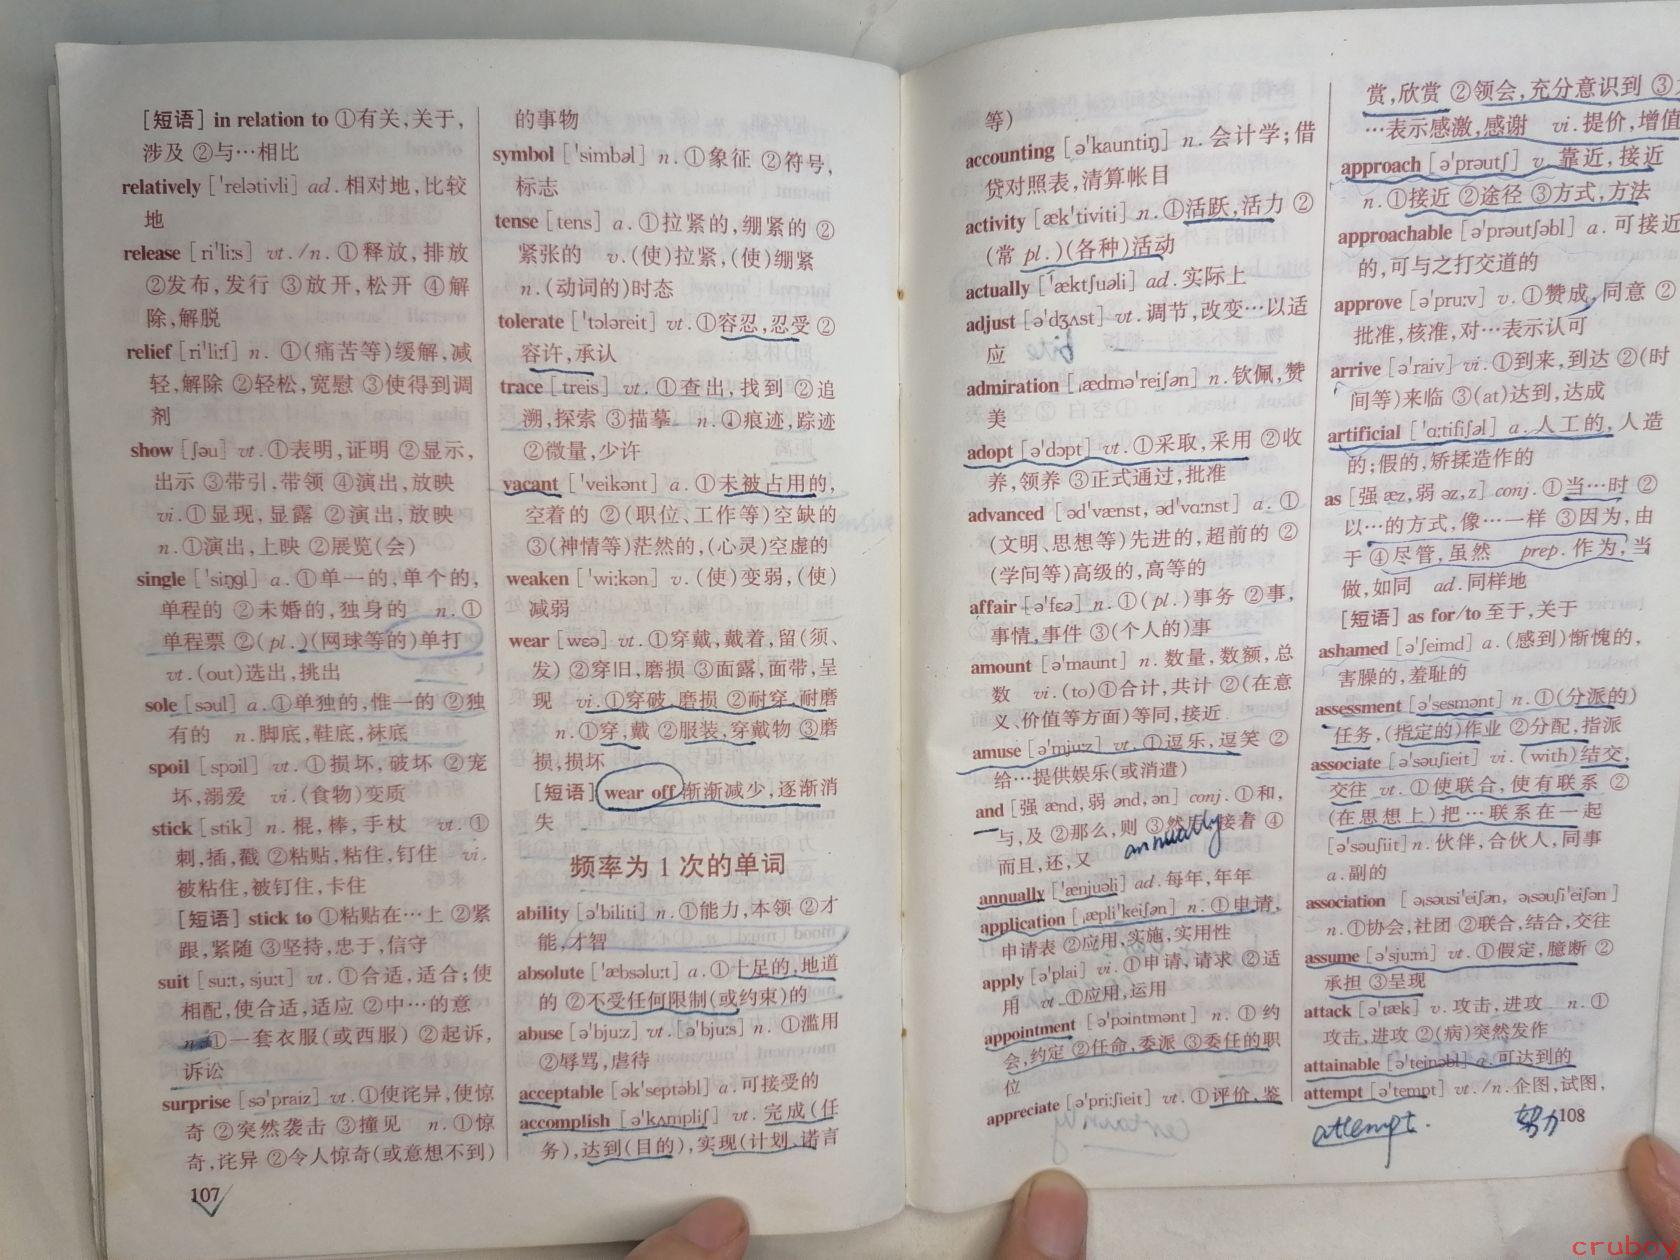 [短语] in relation to ①有关,关于,
涉及 ②与…相比
relatively ['relətivli] ad.相对地,比较
地
release [ri'li:s] vt./n. ①释放,排放
②发布,发行 ③放开,松开 ④解
除,解脱
relief [ri'li:f] n. ①(痛苦等)缓解,减
轻,解除 ②轻松,宽慰 ③使得到调
剂
show [ʃəu] vt.①表明,证明 ②显示,
出示 ③带引,带领 ④演出,放映
vi.①显现,显露 ②演出,放映
n.①演出,上映 ②展览(会)
single ['siŋgl] a.①单一的,单个的,
单程的 ②未婚的,独身的 n.①
单程票 ②(pl.)(网球等的)单打
vt.(out)选出,挑出
sole [səul] a.①单独的,惟一的 ②独
有的 n.脚底,鞋底,袜底
spoil [spɔil] vt.①损坏,破坏 ②宠
坏,溺爱 vi.(食物)变质
stick [stik] n.棍,棒,手杖 vt.①
刺,插,戳 ②粘贴,粘住,钉住 vi.
被粘住,被钉住,卡住
[短语] stick to ①粘贴在…上 ②紧
跟,紧随 ③坚持,忠于,信守
suit [su:t, sju:t] vt.①合适,适合;使
相配,使合适,适应 ②中…的意
n.①一套衣服(或西服) ②起诉,
诉讼
surprise [sə'praiz] vt.①使诧异,使惊
奇 ②突然袭击 ③撞见 n.①惊
奇,诧异 ②令人惊奇(或意想不到)
107
的事物
symbol ['simbəl] n.①象征 ②符号,
标志
tense [tens] a.①拉紧的,绷紧的 ②
紧张的 v.(使)拉紧,(使)绷紧
n.(动词的)时态
tolerate ['tɔləreit] vt.①容忍,忍受 ②
容许,承认
trace [treis] vt.①查出,找到 ②追
溯,探索 ③描摹 n.①痕迹,踪迹
②微量,少许
vacant ['veikənt] a.①未被占用的,
空着的 ②(职位、工作等)空缺的
③(神情等)茫然的,(心灵)空虚的
weaken ['wi:kən] v.(使)变弱,(使)
减弱
wear [wɛə] vt.①穿戴,戴着,留(须、
发) ②穿旧,磨损 ③面露,面带,呈
现 vi.①穿破,磨损 ②耐穿,耐磨
n.①穿,戴 ②服装,穿戴物 ③磨
损,损坏
[短语] wear off 渐渐减少,逐渐消
失
频率为 1 次的单词
ability [ə'biliti] n.①能力,本领 ②才
能,才智
absolute ['æbsəlu:t] a.①十足的,地道
的 ②不受任何限制(或约束)的
abuse [ə'bju:z] vt.[ə'bju:s] n.①滥用
②辱骂,虐待
acceptable [ək'septəbl] a.可接受的
accomplish [ə'kʌmpliʃ] vt.完成(任
务),达到(目的),实现(计划、诺言
等)
accounting [ə'kauntiŋ] n.会计学;借
贷对照表,清算帐目
activity [æk'tiviti] n.①活跃,活力 ②
(常 pl.)(各种)活动
actually ['æktʃuəli] ad.实际上
adjust [ə'dʒʌst] vt.调节,改变…以适
应
admiration [ˌædmə'reiʃən] n.钦佩,赞
美
adopt [ə'dɔpt] vt.①采取,采用 ②收
养,领养 ③正式通过,批准
advanced [əd'vænst, əd'vɑ:nst] a.①
(文明、思想等)先进的,超前的 ②
(学问等)高级的,高等的
affair [ə'fɛə] n.①(pl.)事务 ②事,
事情,事件 ③(个人的)事
amount [ə'maunt] n.数量,数额,总
数 vi.(to)①合计,共计 ②(在意
义、价值等方面)等同,接近
amuse [ə'mju:z] vt.①逗乐,逗笑 ②
给…提供娱乐(或消遣)
and [强 ænd,弱 ənd,ən] conj.①和,
与,及 ②那么,则 ③然后,接着 ④
而且,还,又 annually
annually ['ænjuəli] ad.每年,年年
application [ˌæpli'keiʃən] n.①申请,
申请表 ②应用,实施,实用性
apply [ə'plai] vi.①申请,请求 ②适
用 vt.①应用,运用
appointment [ə'pɔintmənt] n.①约
会,约定 ②任命,委派 ③委任的职
位
appreciate [ə'pri:ʃieit] vt.①评价,鉴
赏,欣赏 ②领会,充分意识到 ③
…表示感激,感谢 vi.提价,增值
approach [ə'prəutʃ] v.靠近,接近
n.①接近 ②途径 ③方式,方法
approachable [ə'prəutʃəbl] a.可接近
的,可与之打交道的
approve [ə'pru:v] v.①赞成,同意 ②
批准,核准,对…表示认可
arrive [ə'raiv] vi.①到来,到达 ②(时
间等)来临 ③(at)达到,达成
artificial [ˌɑ:tifiʃəl] a.人工的,人造
的;假的,矫揉造作的
as [强 æz,弱 əz,z] conj.①当…时 ②
以…的方式,像…一样 ③因为,由
于 ④尽管,虽然 prep.作为,当
做,如同 ad.同样地
[短语] as for/to 至于,关于
ashamed [ə'ʃeimd] a.(感到)惭愧的,
害臊的,羞耻的
assessment [ə'sesmənt] n.①(分派的)
任务,(指定的)作业 ②分配,指派
associate [ə'səuʃieit] vi.(with)结交,
交往 vt.①使联合,使有联系 ②
(在思想上)把…联系在一起
[ə'səuʃiit] n.伙伴,合伙人,同事
a.副的
association [əˌsəusi'eiʃən, əˌsəuʃi'eiʃən]
n.①协会,社团 ②联合,结合,交往
assume [ə'sju:m] vt.①假定,臆断 ②
承担 ③呈现
attack [ə'tæk] v.攻击,进攻 n.①
攻击,进攻 ②(病)突然发作
attainable [ə'teinəbl] a.可达到的
attempt [ə'tempt] vt./n.企图,试图,
attempt. 努力
108
crubox